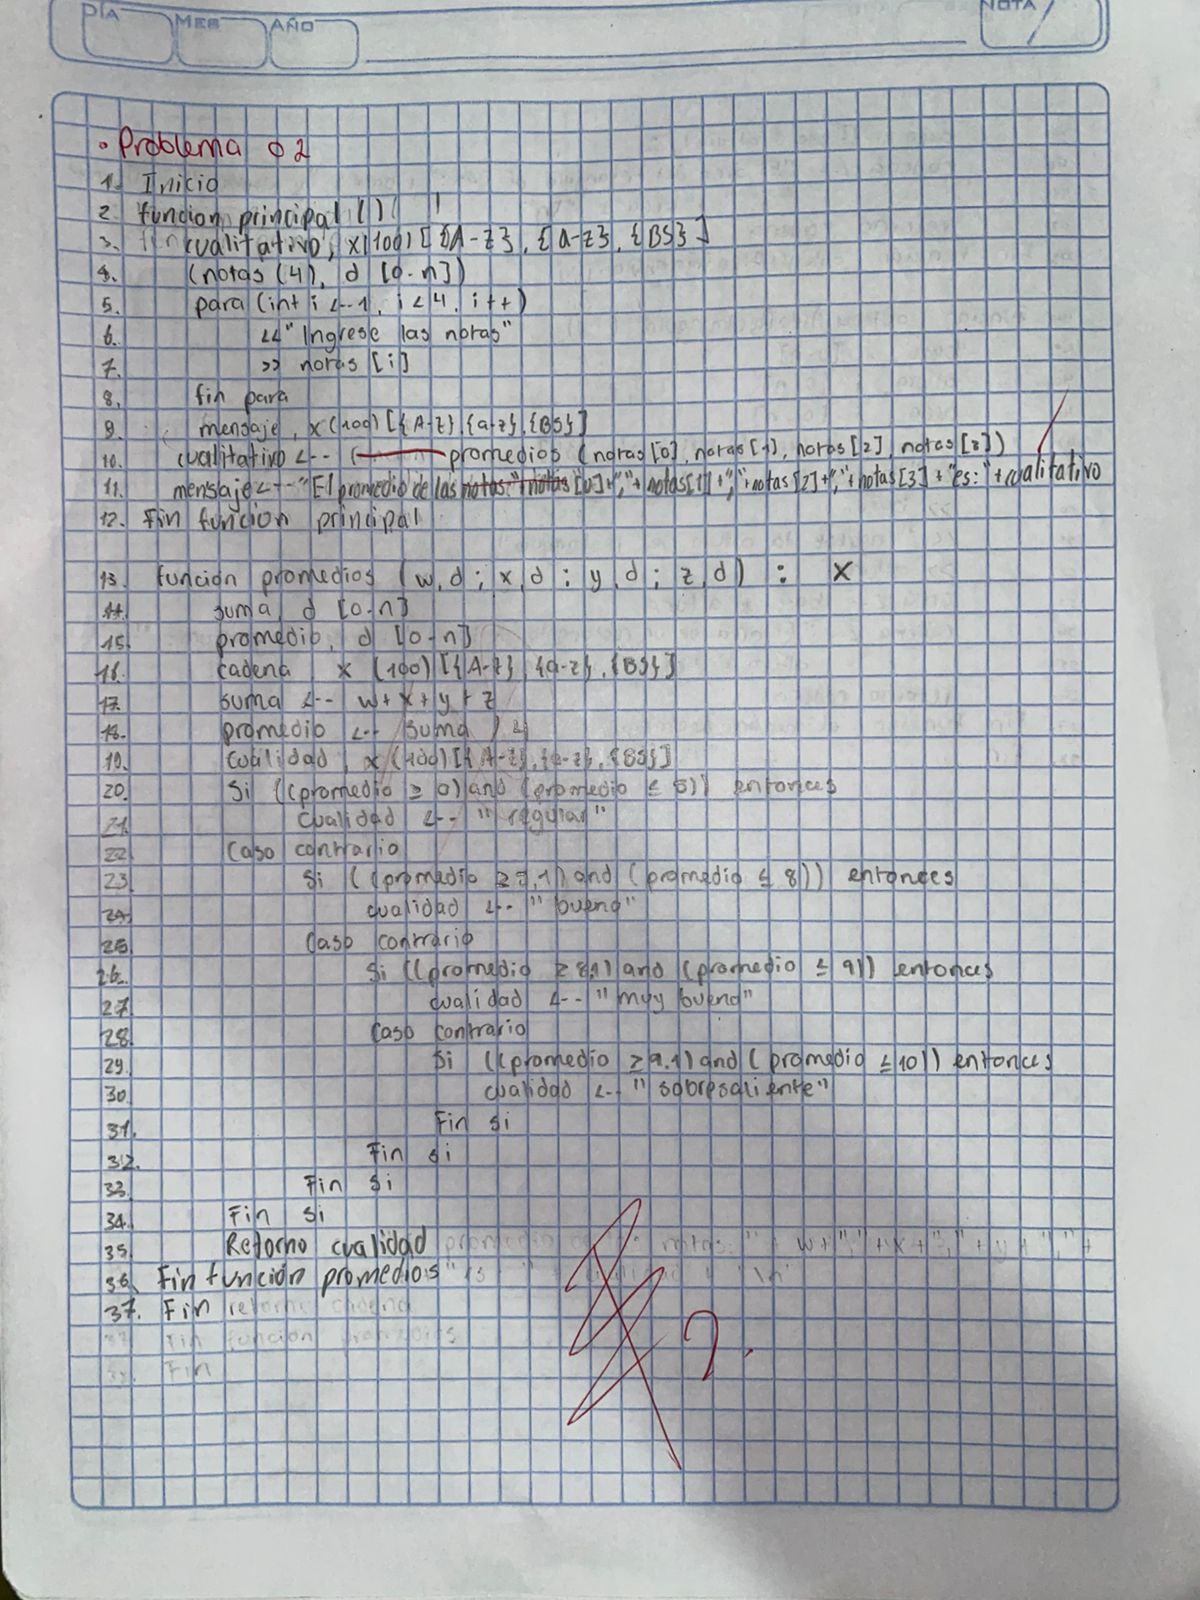 DÍA MES AÑO NOTA
• Problema 02
1. Inicio
2. funcion principal ()
3. cualitativo, x(100) [{A-Z}, {a-z}, {BS}]
4. (notas (4), d [0-n])
5. para (int i <-- 1, i < 4, i++)
6. << "Ingrese las notas"
7. >> notas [i]
8. fin para
9. mensaje, x(100) [{A-Z}, {a-z}, {BS}]
10. cualitativo <-- promedios (notas [0], notas [1], notas [2], notas [3])
11. mensaje <-- "El promedio de las notas:" + notas [0]+","+notas[1]+","+notas[2]+","+notas[3] + "es:" + cualitativo
12. Fin funcion principal
13. funcion promedios (w,d ; x,d ; y,d ; z,d) : X
14. suma, d [0-n]
15. promedio, d [0-n]
16. cadena x (100) [{A-Z}, {a-z}, {BS}]
17. suma <-- w+x+y+z
18. promedio <-- suma / 4
19. cualidad, x (100) [{A-Z}, {a-z}, {BS}]
20. Si ((promedio ≥ 0) and (promedio ≤ 5)) entonces
21. cualidad <-- "regular"
22. Caso contrario
23. Si ((promedio ≥ 7,1) and (promedio ≤ 8)) entonces
24. cualidad <-- "bueno"
25. Caso contrario
26. Si ((promedio ≥ 8,1) and (promedio ≤ 9)) entonces
27. cualidad <-- "muy bueno"
28. Caso contrario
29. Si ((promedio ≥ 9.1) and (promedio ≤ 10)) entonces
30. cualidad <-- "sobresaliente"
31. Fin si
32. Fin si
33. Fin si
34. Fin si
35. Retorno cualidad
36. Fin función promedios
37. Fin retorno cadena
37. Fin funcion promedios
38. Fin